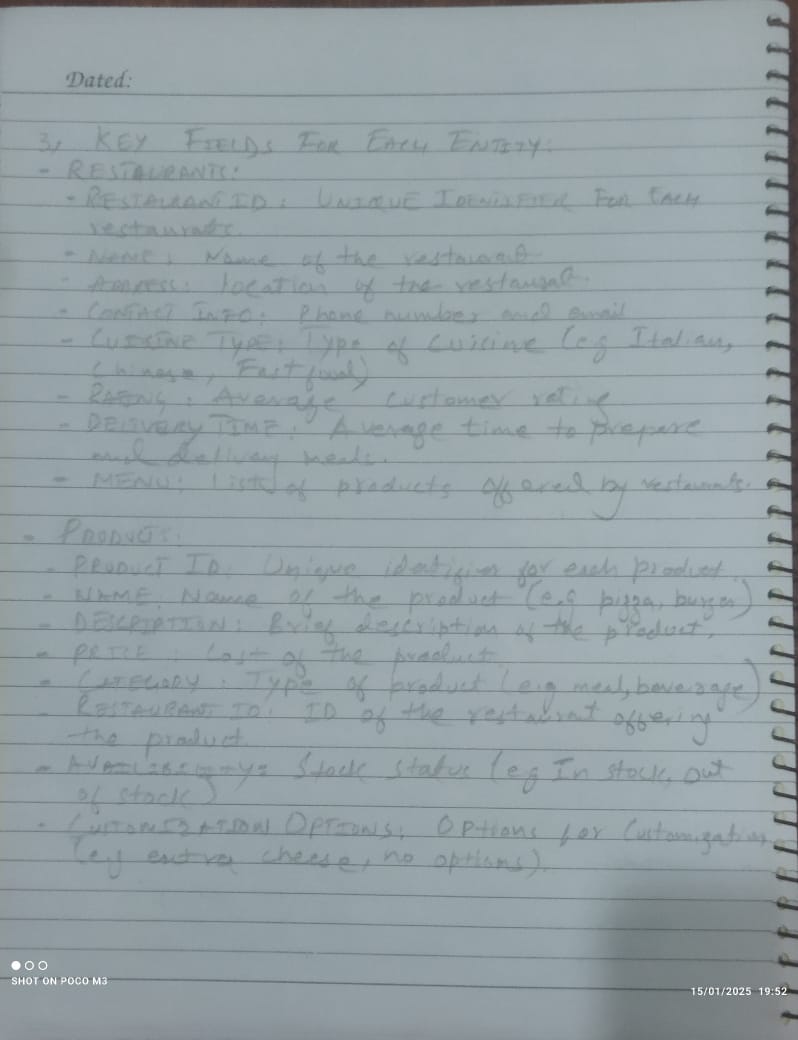 Dated:
3, KEY FIELDS FOR EACH ENTITY:
- RESTAURANTS:
- RESTAURANT ID: UNIQUE IDENIFIER FOR EACH
restaurants.
- NAME: Name of the restaurant
- ADDRESS: location of the restaurant.
- CONTACT INFO: Phone number and email
- CUISINE TYPE: Type of Cuisine (e.g Italian,
Chinese, Fast food)
- RATING: Average customer rating
- DELIVERY TIME: Average time to prepare
and delivery meals.
- MENU: List of products offered by restaurants.
- PRODUCTS:
- PRODUCT ID: Unique identifier for each product.
- NAME: Name of the product (e.g pizza, burger)
- DESCRIPTION: Brief description of the product.
- PRICE: Cost of the product
- CATEGORY: Type of product (e.g meal, baverage)
- RESTAURANT ID: ID of the restaurant offering
the product.
- AVAILIBILITY: Stock status (eg In stock, out
of stock)
- CUSTOMIZATION OPTIONS: Options for Customization
(eg extra cheese, no options).
SHOT ON POCO M3
15/01/2025 19:52